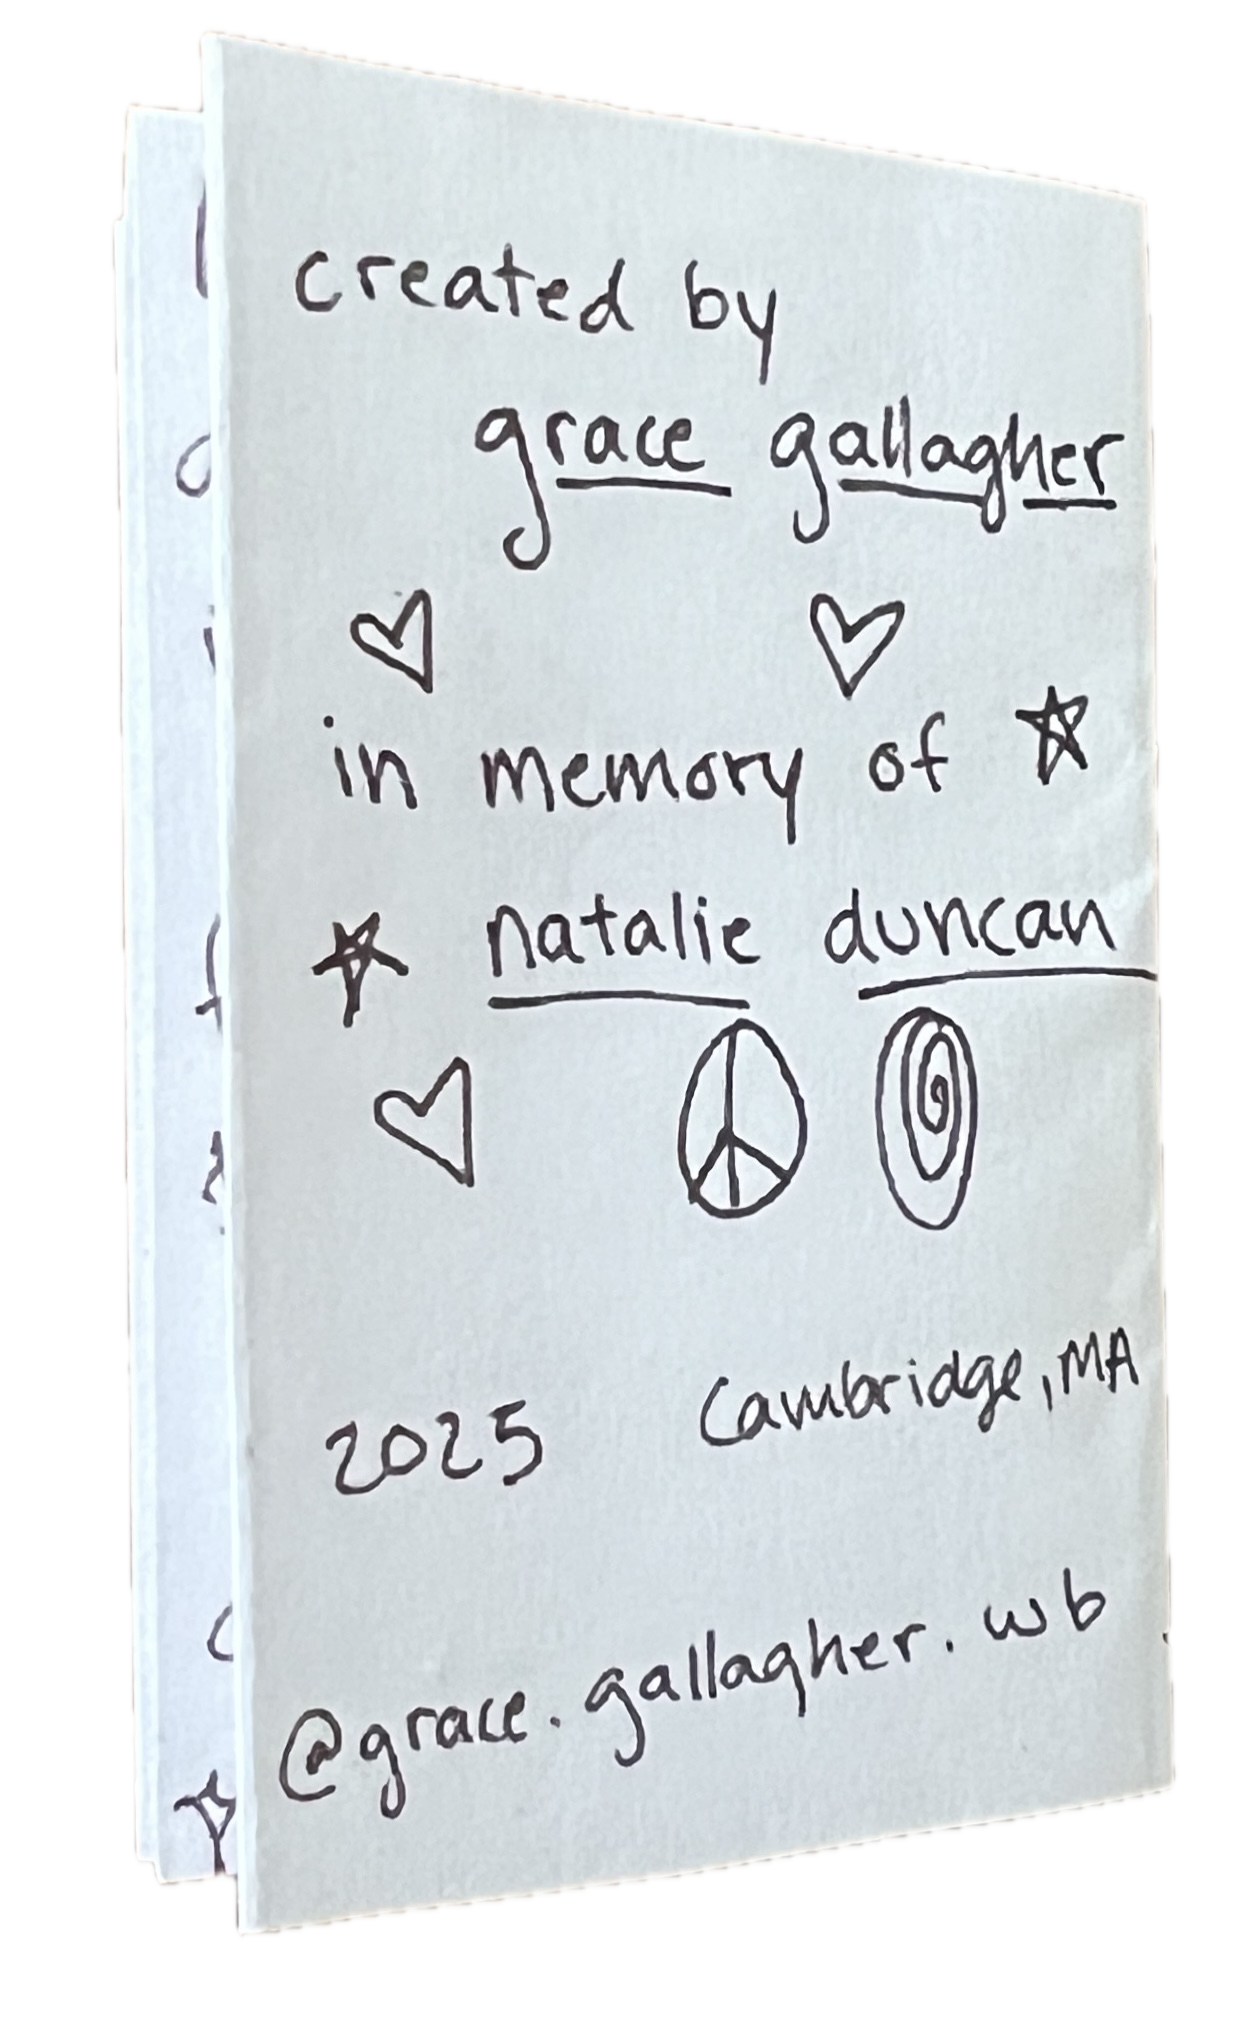 created by
grace gallagher
in memory of
natalie duncan
2025 Cambridge, MA
@grace.gallagher.wb